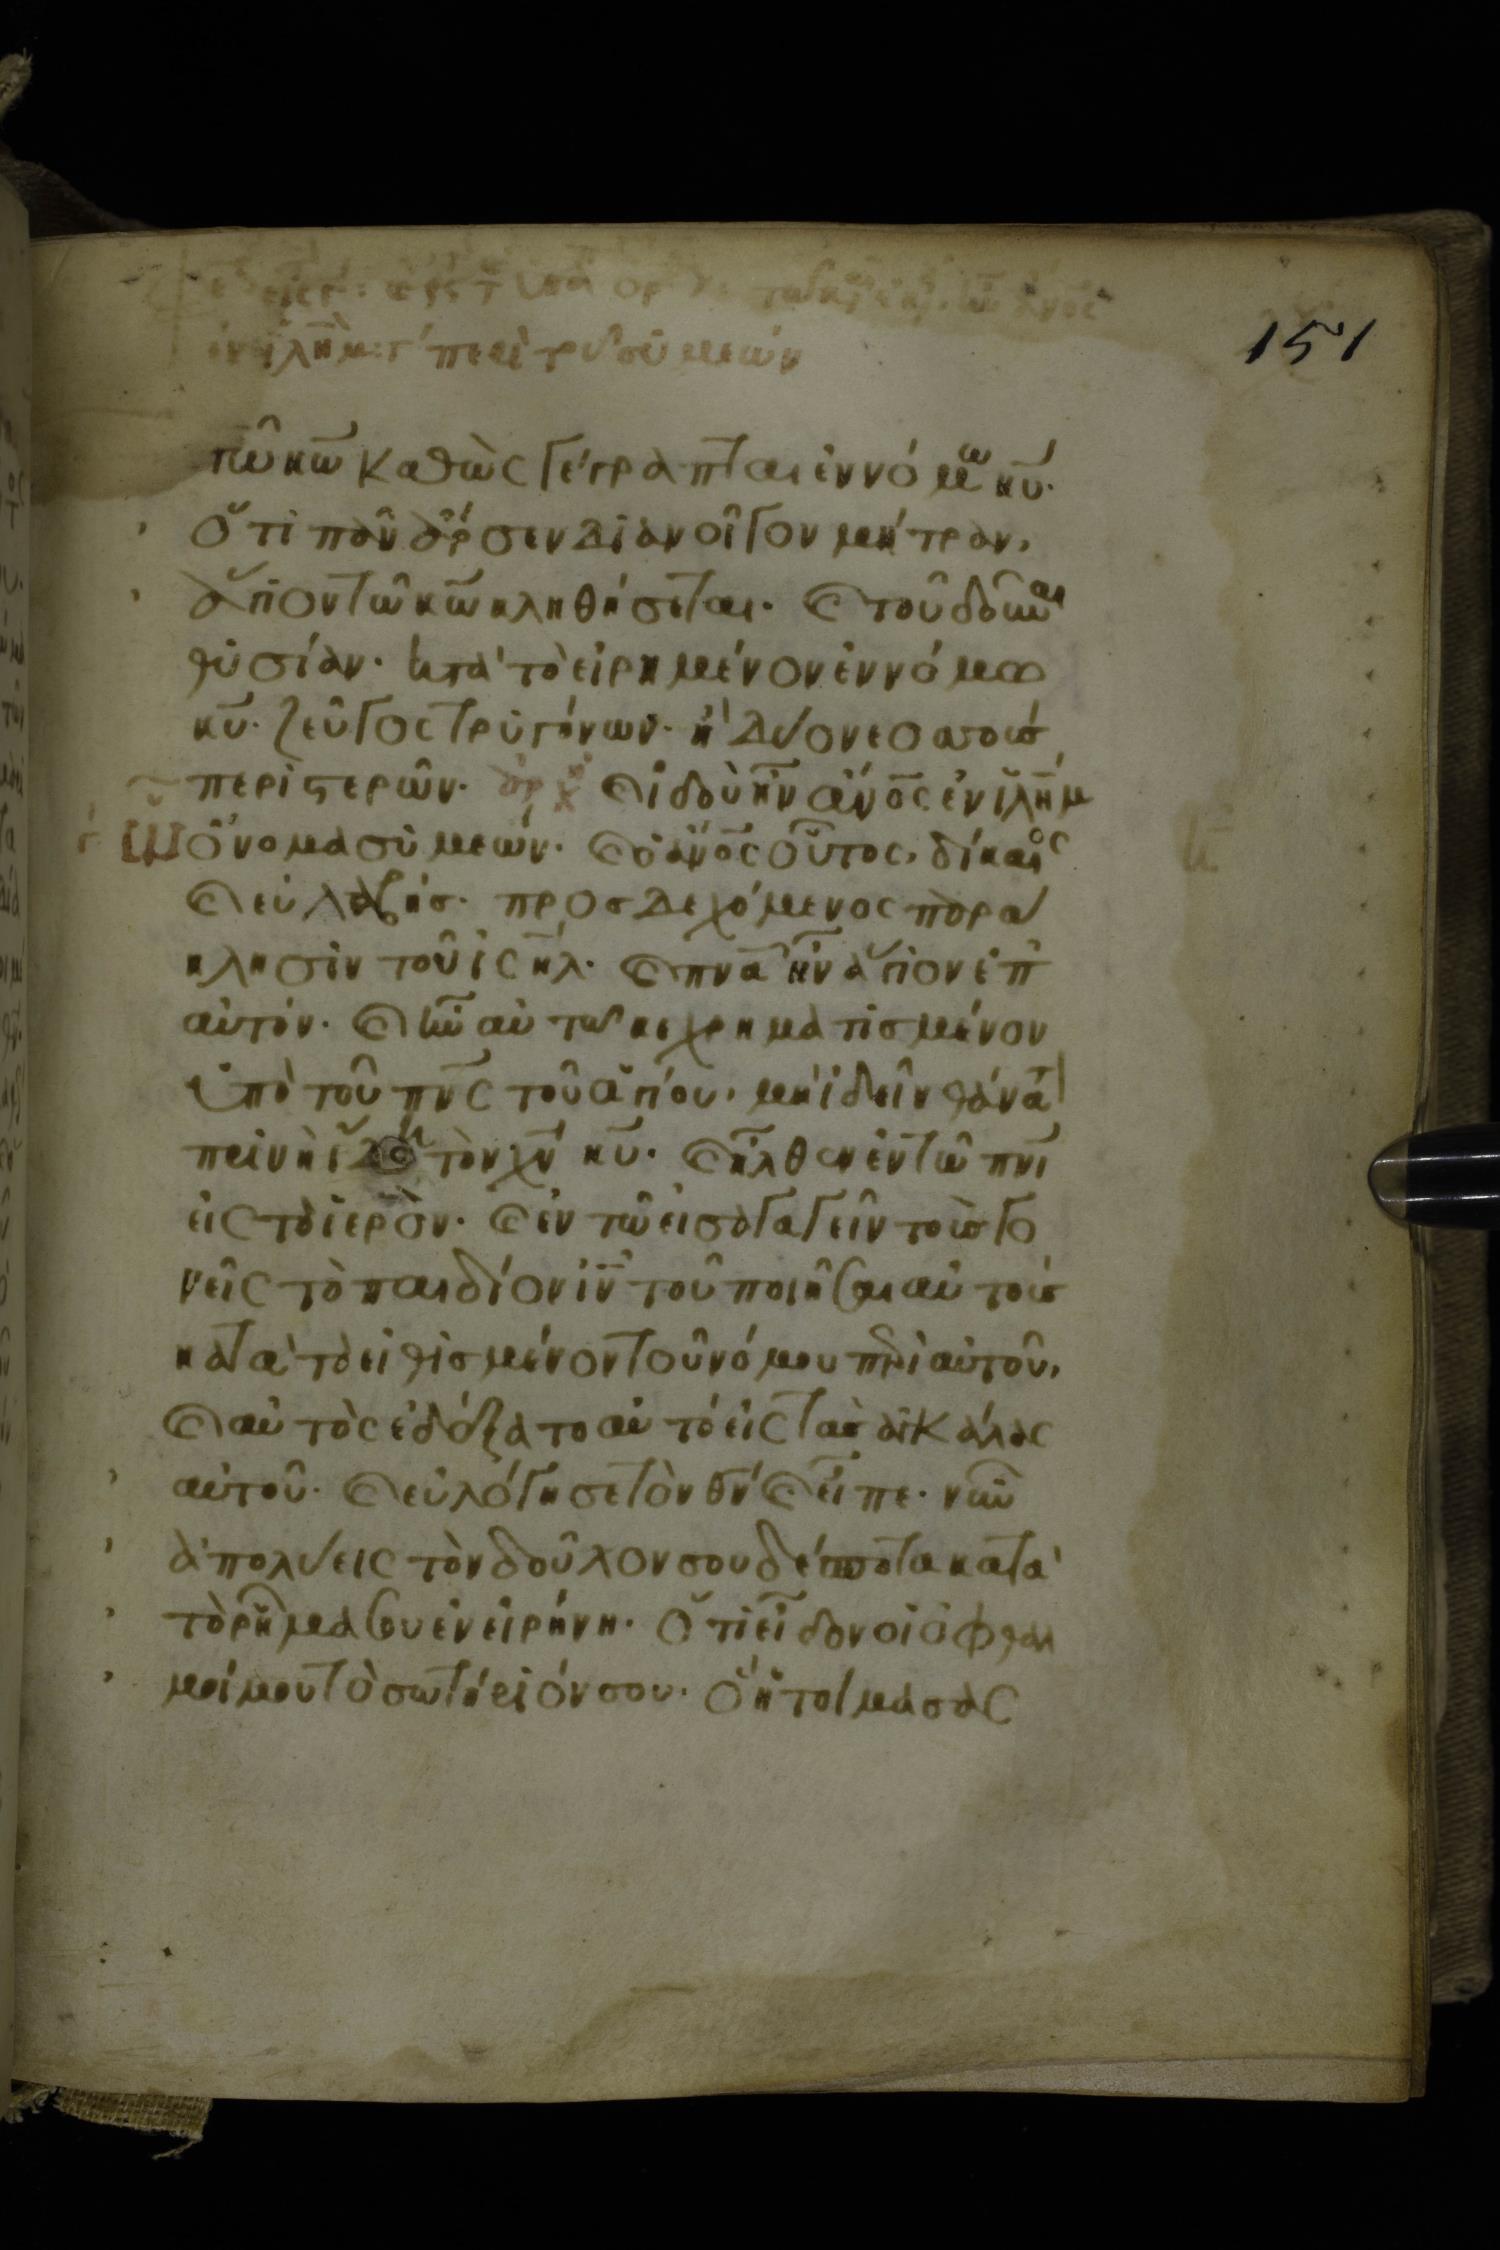 151
ἐν ἰλημ: γ´ περὶ τοῦ συμεών
τῶ κω καθὼς γέγραπται ἐν νόμω κυ·
ὅτι πᾶν ἄρσεν διανοῖγον μήτραν,
ἅγιον τῶ κω κληθήσεται· καὶ τοῦ δοῦναι
θυσίαν· κατὰ τὸ εἰρημένον ἐν νόμω
κυ· ζεῦγος τρυγόνων· ἢ δύο νεοσσοὺς
περιστερῶν· ἀρχ καὶ ἰδοὺ ἦν ἄνος ἐν ἰλημ
γ ὄνομα συμεών· καὶ ὁ ἄνος οὗτος, δίκαιος
καὶ εὐλαβής· προσδεχόμενος παρά
κλησιν τοῦ ἰσηλ· καὶ πνα ἦν ἅγιον ἐπ
αὐτόν· καὶ ἦν αὐτῶ κεχρηματισμένον
ὑπὸ τοῦ πνς τοῦ ἁγίου, μὴ ἰδεῖν θάνατ
πρινὴ ἴδη τὸν χν κυ· καὶ ἦλθεν ἐν τῶ πνι
εἰς τὸ ἱερὸν· καὶ ἐν τῶ εἰσαγαγεῖν τοὺς γο
νεῖς τὸ παιδίον ιν τοῦ ποιῆσαι αὐτοὺς
κατὰ τὸ εἰθισμένον τοῦ νόμου περὶ αὐτοῦ,
καὶ αὐτὸς ἐδέξατο αὐτό εἰς τὰς ἀγκάλας
αὐτοῦ· καὶ εὐλόγησε τὸν θν καὶ εἶπε· νῦν
ἀπολύεις τὸν δοῦλον σου δέσποτα κατὰ
τὸ ῥῆμα σου ἐν εἰρήνη· ὅτι εἶδον οἱ ὀφθαλ
μοί μου τὸ σωτήριόν σου· ὃ ἡτοίμασας